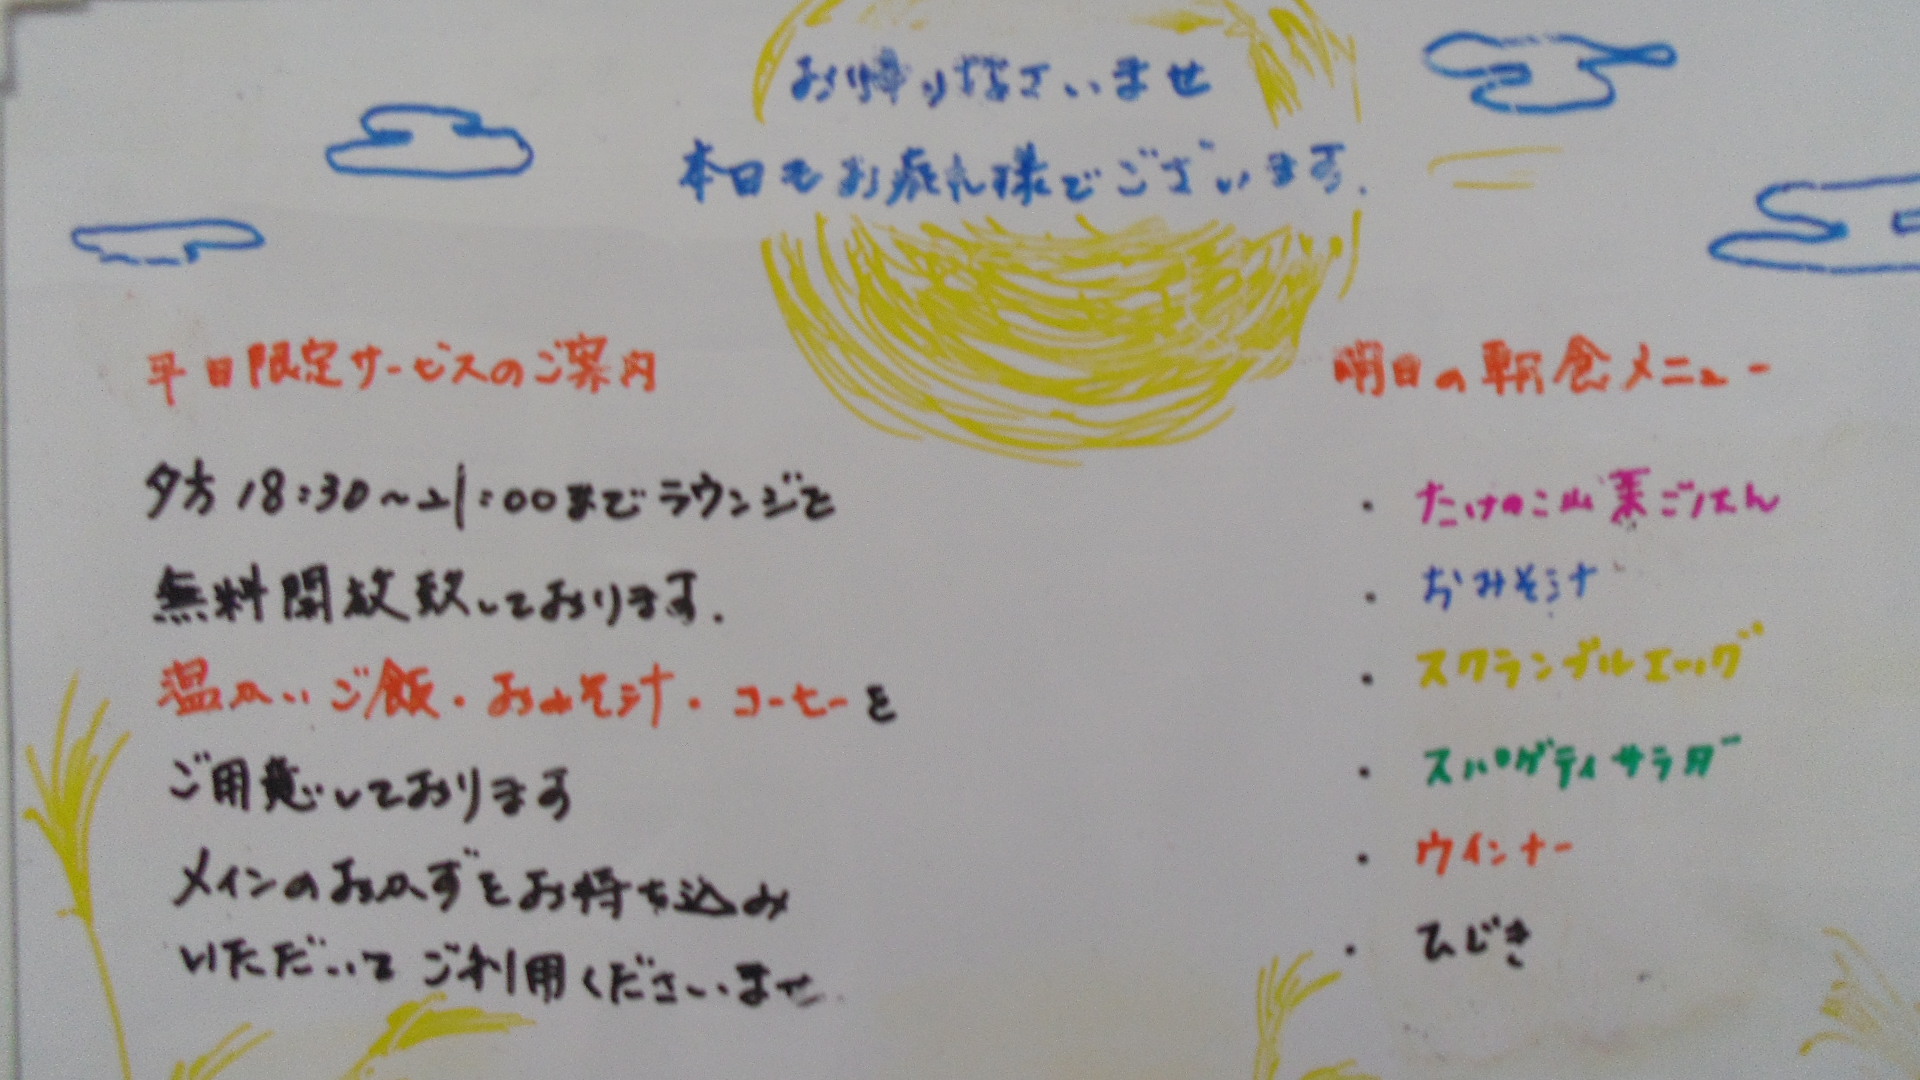 お帰りなさいませ
本日もお疲れ様でございます.
平日限定サービスのご案内
夕方18:30～21:00までラウンジを
無料開放致しております.
温かいご飯・おみそ汁・コーヒーを
ご用意しております
メインのおかずをお持ち込み
いただいてご利用くださいませ.
明日の朝食メニュー
・たけのこ山菜ごはん
・おみそ汁
・スクランブルエッグ
・スパゲティサラダー
・ウインナー
・ひじき